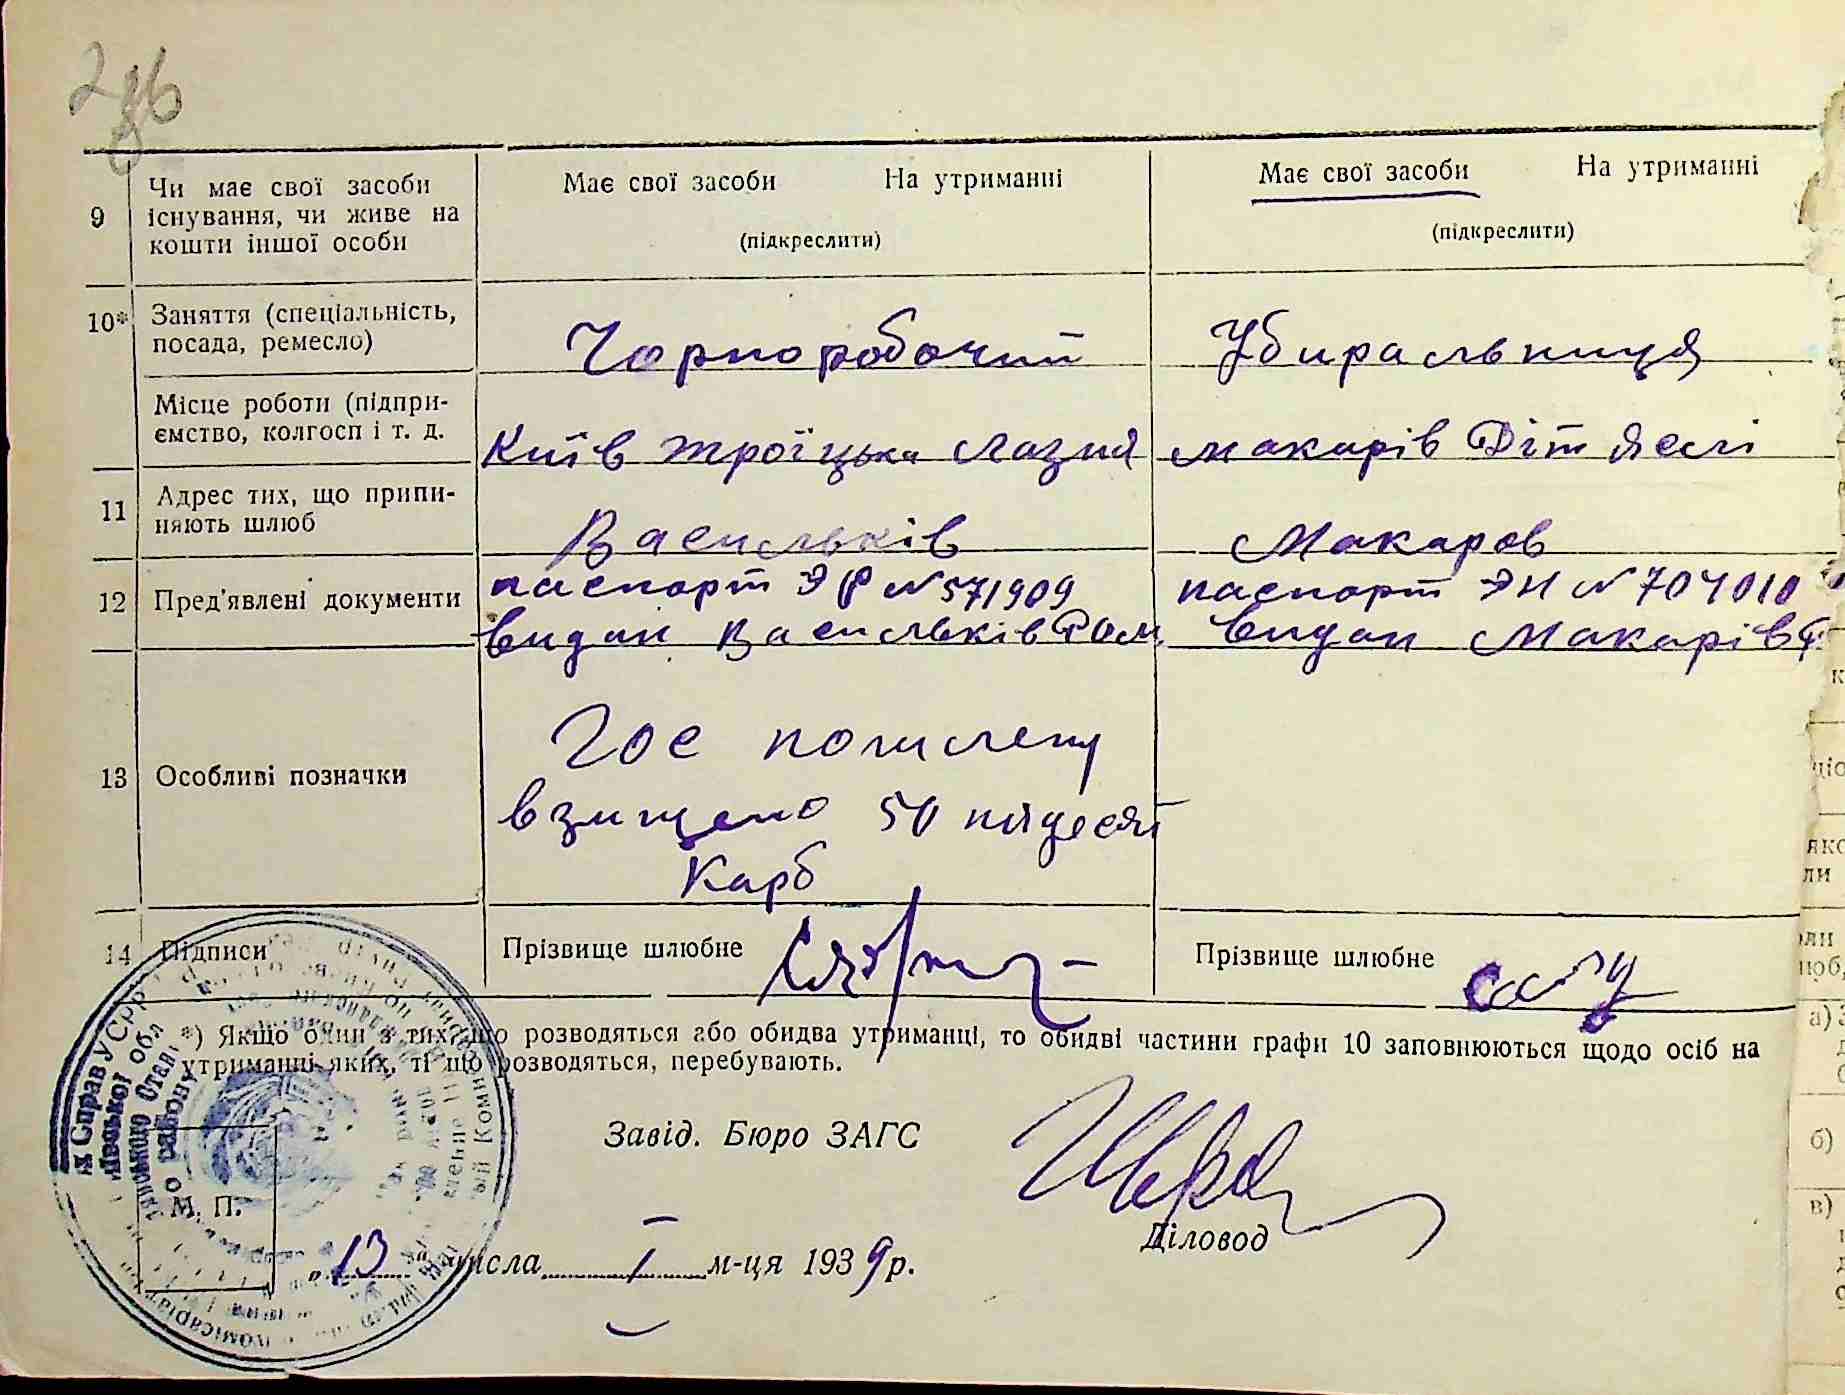 Чи має свої засоби існування, чи живе на кошти іншої особи
9
Має свої засоби На утриманні
(підкреслити)
Має свої засоби На утриманні
(підкреслити)
10* Заняття (спеціальність,
посада, ремесло)
Чорноробочий
Убиральниця
Місце роботи (підпри-
ємство, колгосп і т. д.
Київ Троїцька Лазня
Макарів Діт Яслі
11 Адрес тих, що припи-
няють шлюб
Васильків
Макаров
12 Пред'явлені документи
паспорт ЭР № 571909
видан Васильків
паспорт ЭН № 704010
видан Макарів
13 Особливі позначки
Гос пошлену
взищено 50 пядесят
Карб
14 Підписи
Прізвище шлюбне
Прізвище шлюбне
*) Якщо один з тих, що розводяться або обидва утриманці, то обидві частини графи 10 заповнюються щодо осіб на
утриманні яких, ті що розводяться, перебувають.
Завід. Бюро ЗАГС
М. П.
Діловод
„13" числа I м-ця 1939 р.